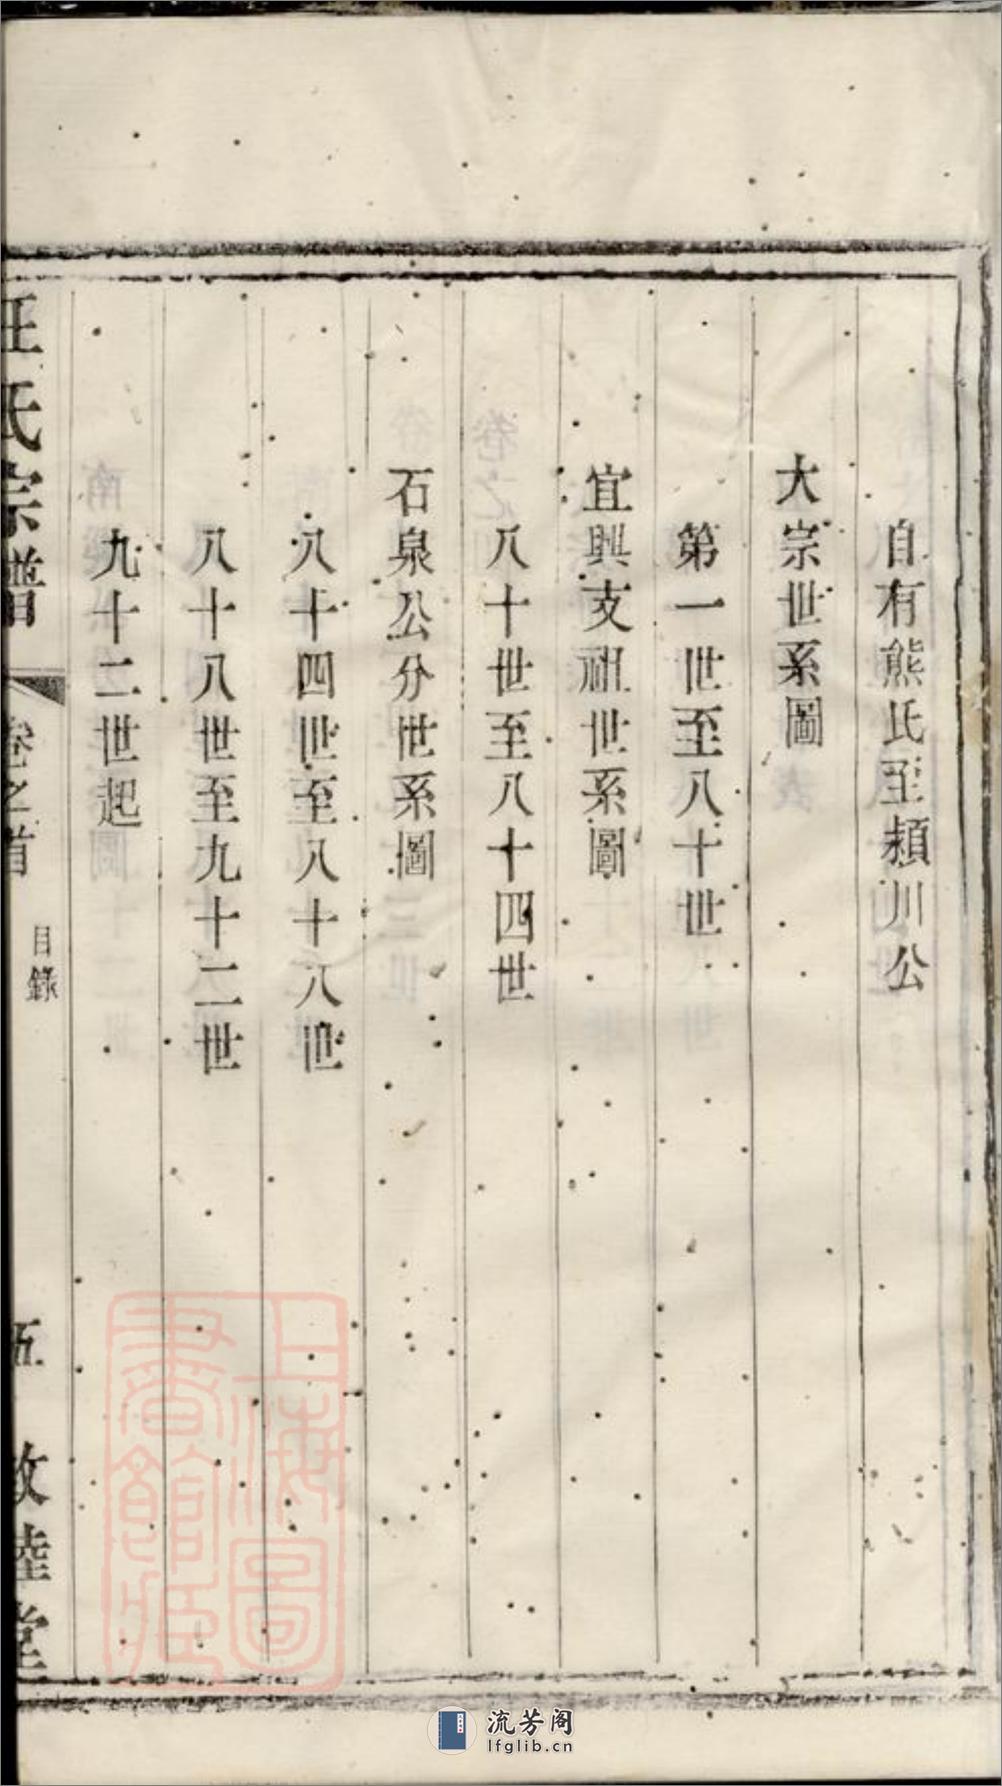 自有熊氏至潁川公
大宗世系圖
第一世至八十世
宜興支祖世系圖
八十世至八十四世
石泉公分世系圖
八十四世至八十八世
八十八世至九十二世
九十二世起
汪氏宗譜
卷之首
目錄
五
敦睦堂
上海圖書館藏
流芳阁
lfglib.cn